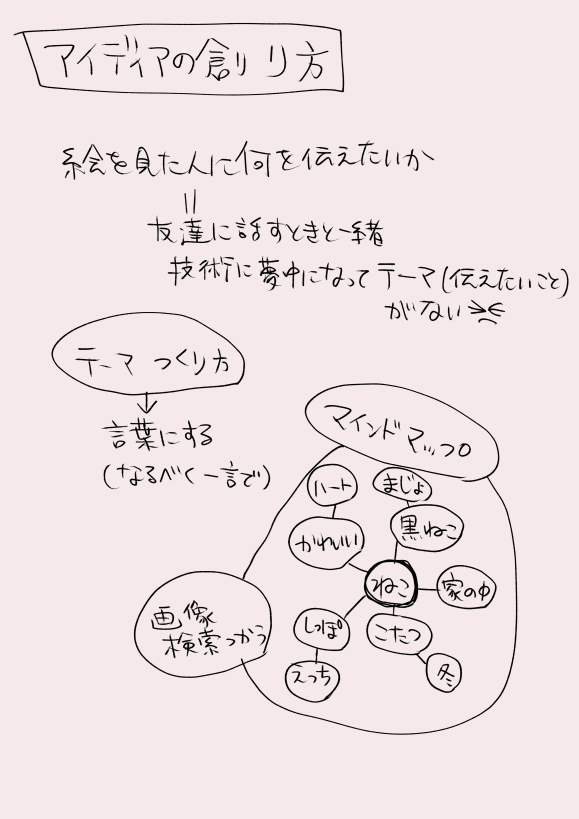 アイディアの創り方
絵を見た人に何を伝えたいか
=
友達に話すときと一緒
技術に夢中になってテーマ(伝えたいこと)
がない
テーマつくり方
↓
言葉にする
(なるべく一言で)
マインドマップ
ハート
まじょ
かわいい
黒ねこ
ねこ
家の中
しっぽ
こたつ
えっち
冬
画像
検索つかう